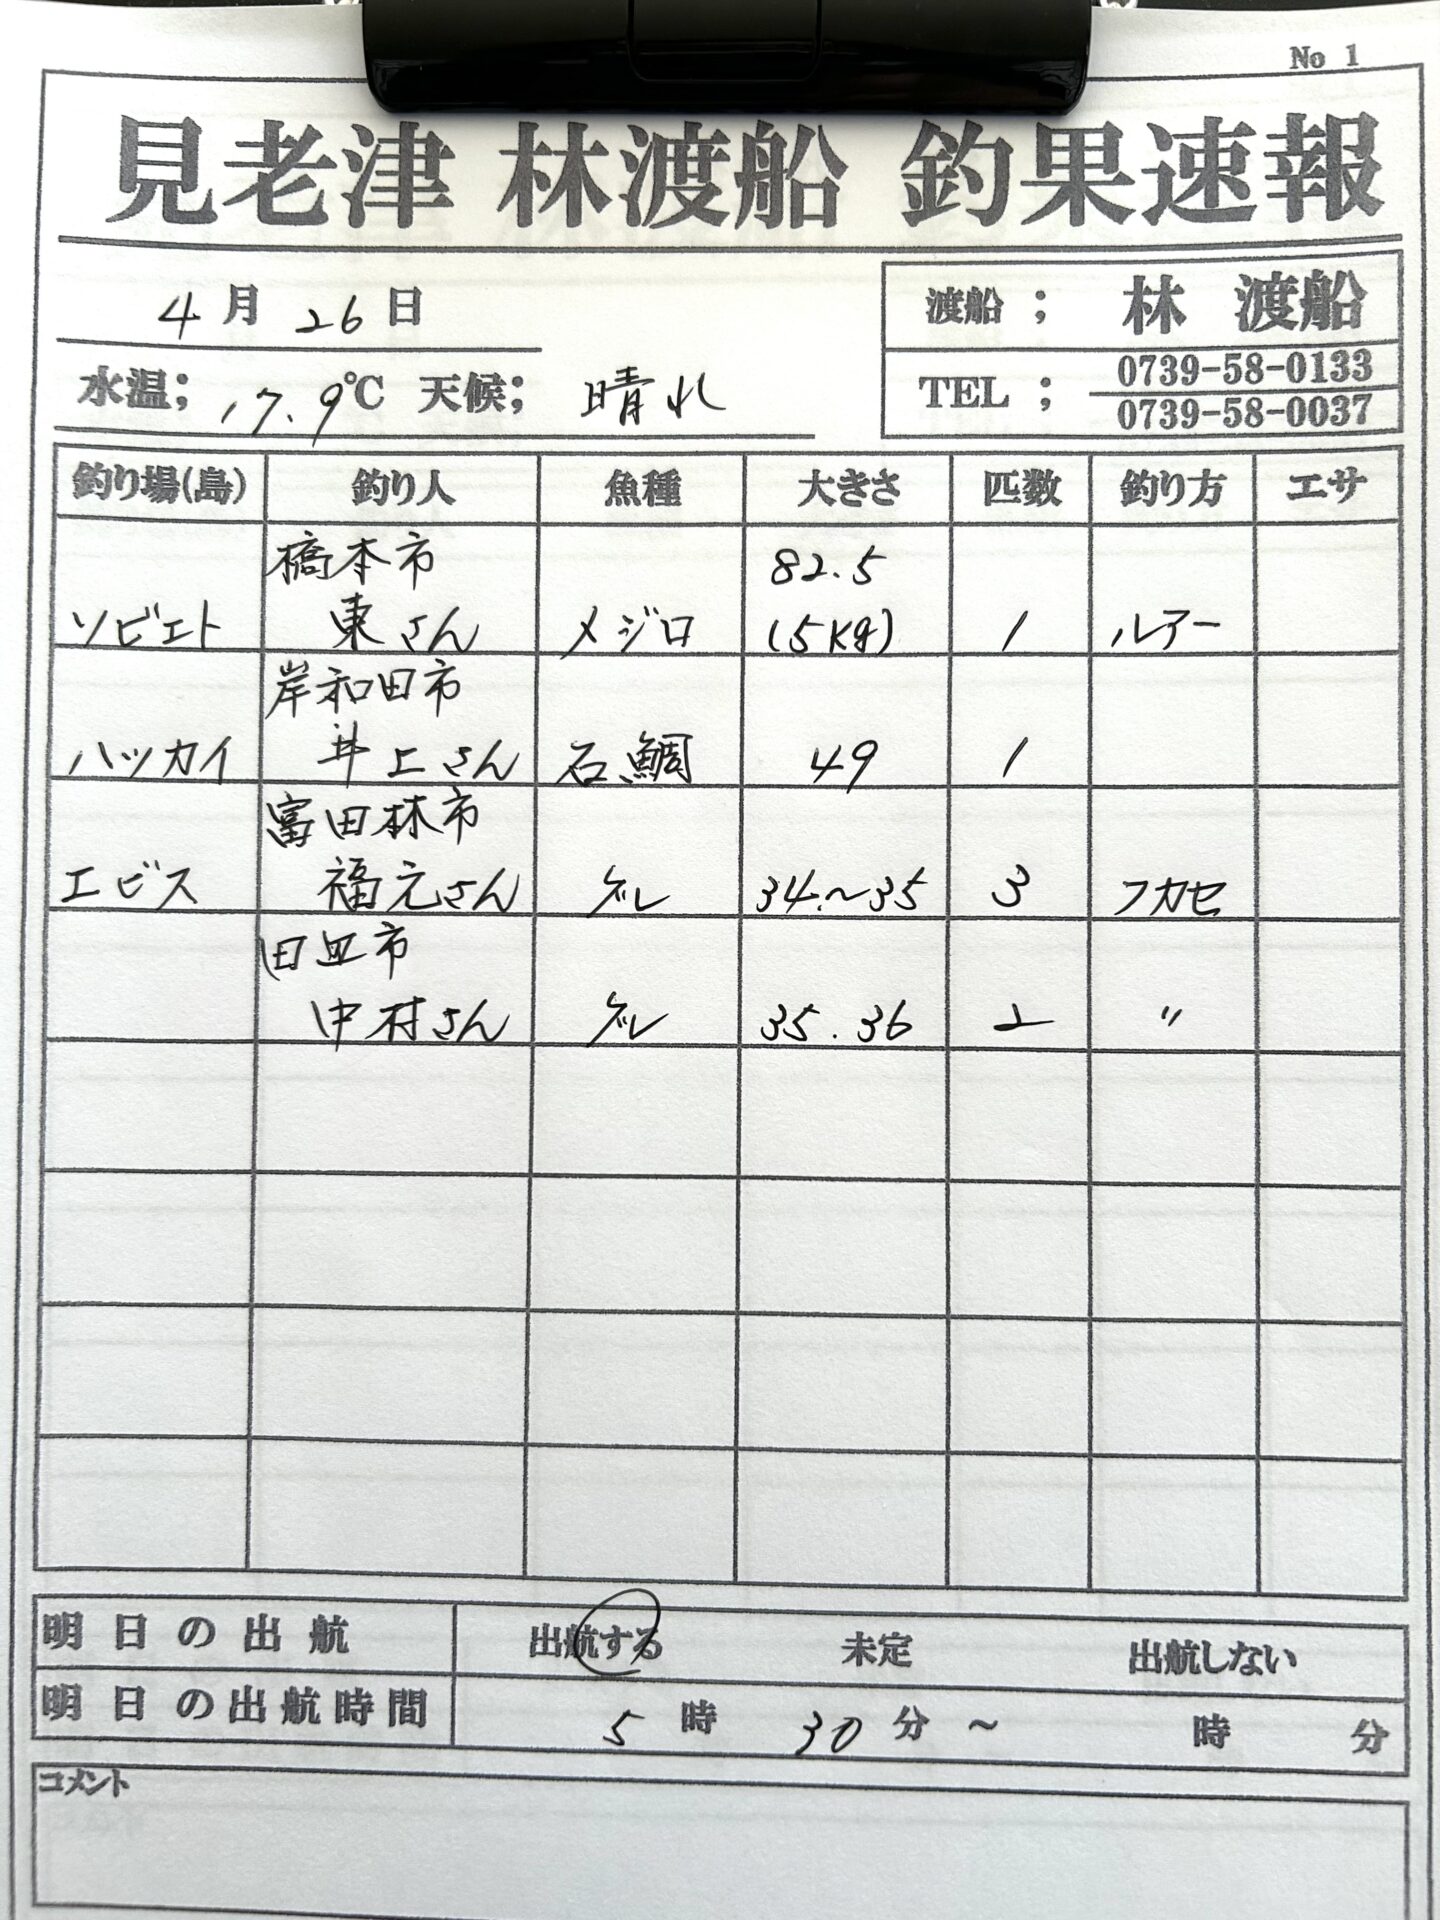 No 1
見老津 林渡船 釣果速報
4月26日
渡船 ; 林 渡船
水温; 17.9℃ 天候; 晴れ
TEL ; 0739-58-0133
0739-58-0037
釣り場(島) 釣り人 魚種 大きさ 匹数 釣り方 エサ
橋本市 82.5
ソビエト 東さん メジロ (5Kg) 1 ルアー
岸和田市
ハッカイ 井上さん 石鯛 49 1
富田林市
エビス 福元さん グレ 34.~35 3 フカセ
田辺市
中村さん グレ 35.36 2 〃
明日の出航 出航する 未定 出航しない
明日の出航時間 5時30分~ 時 分
コメント